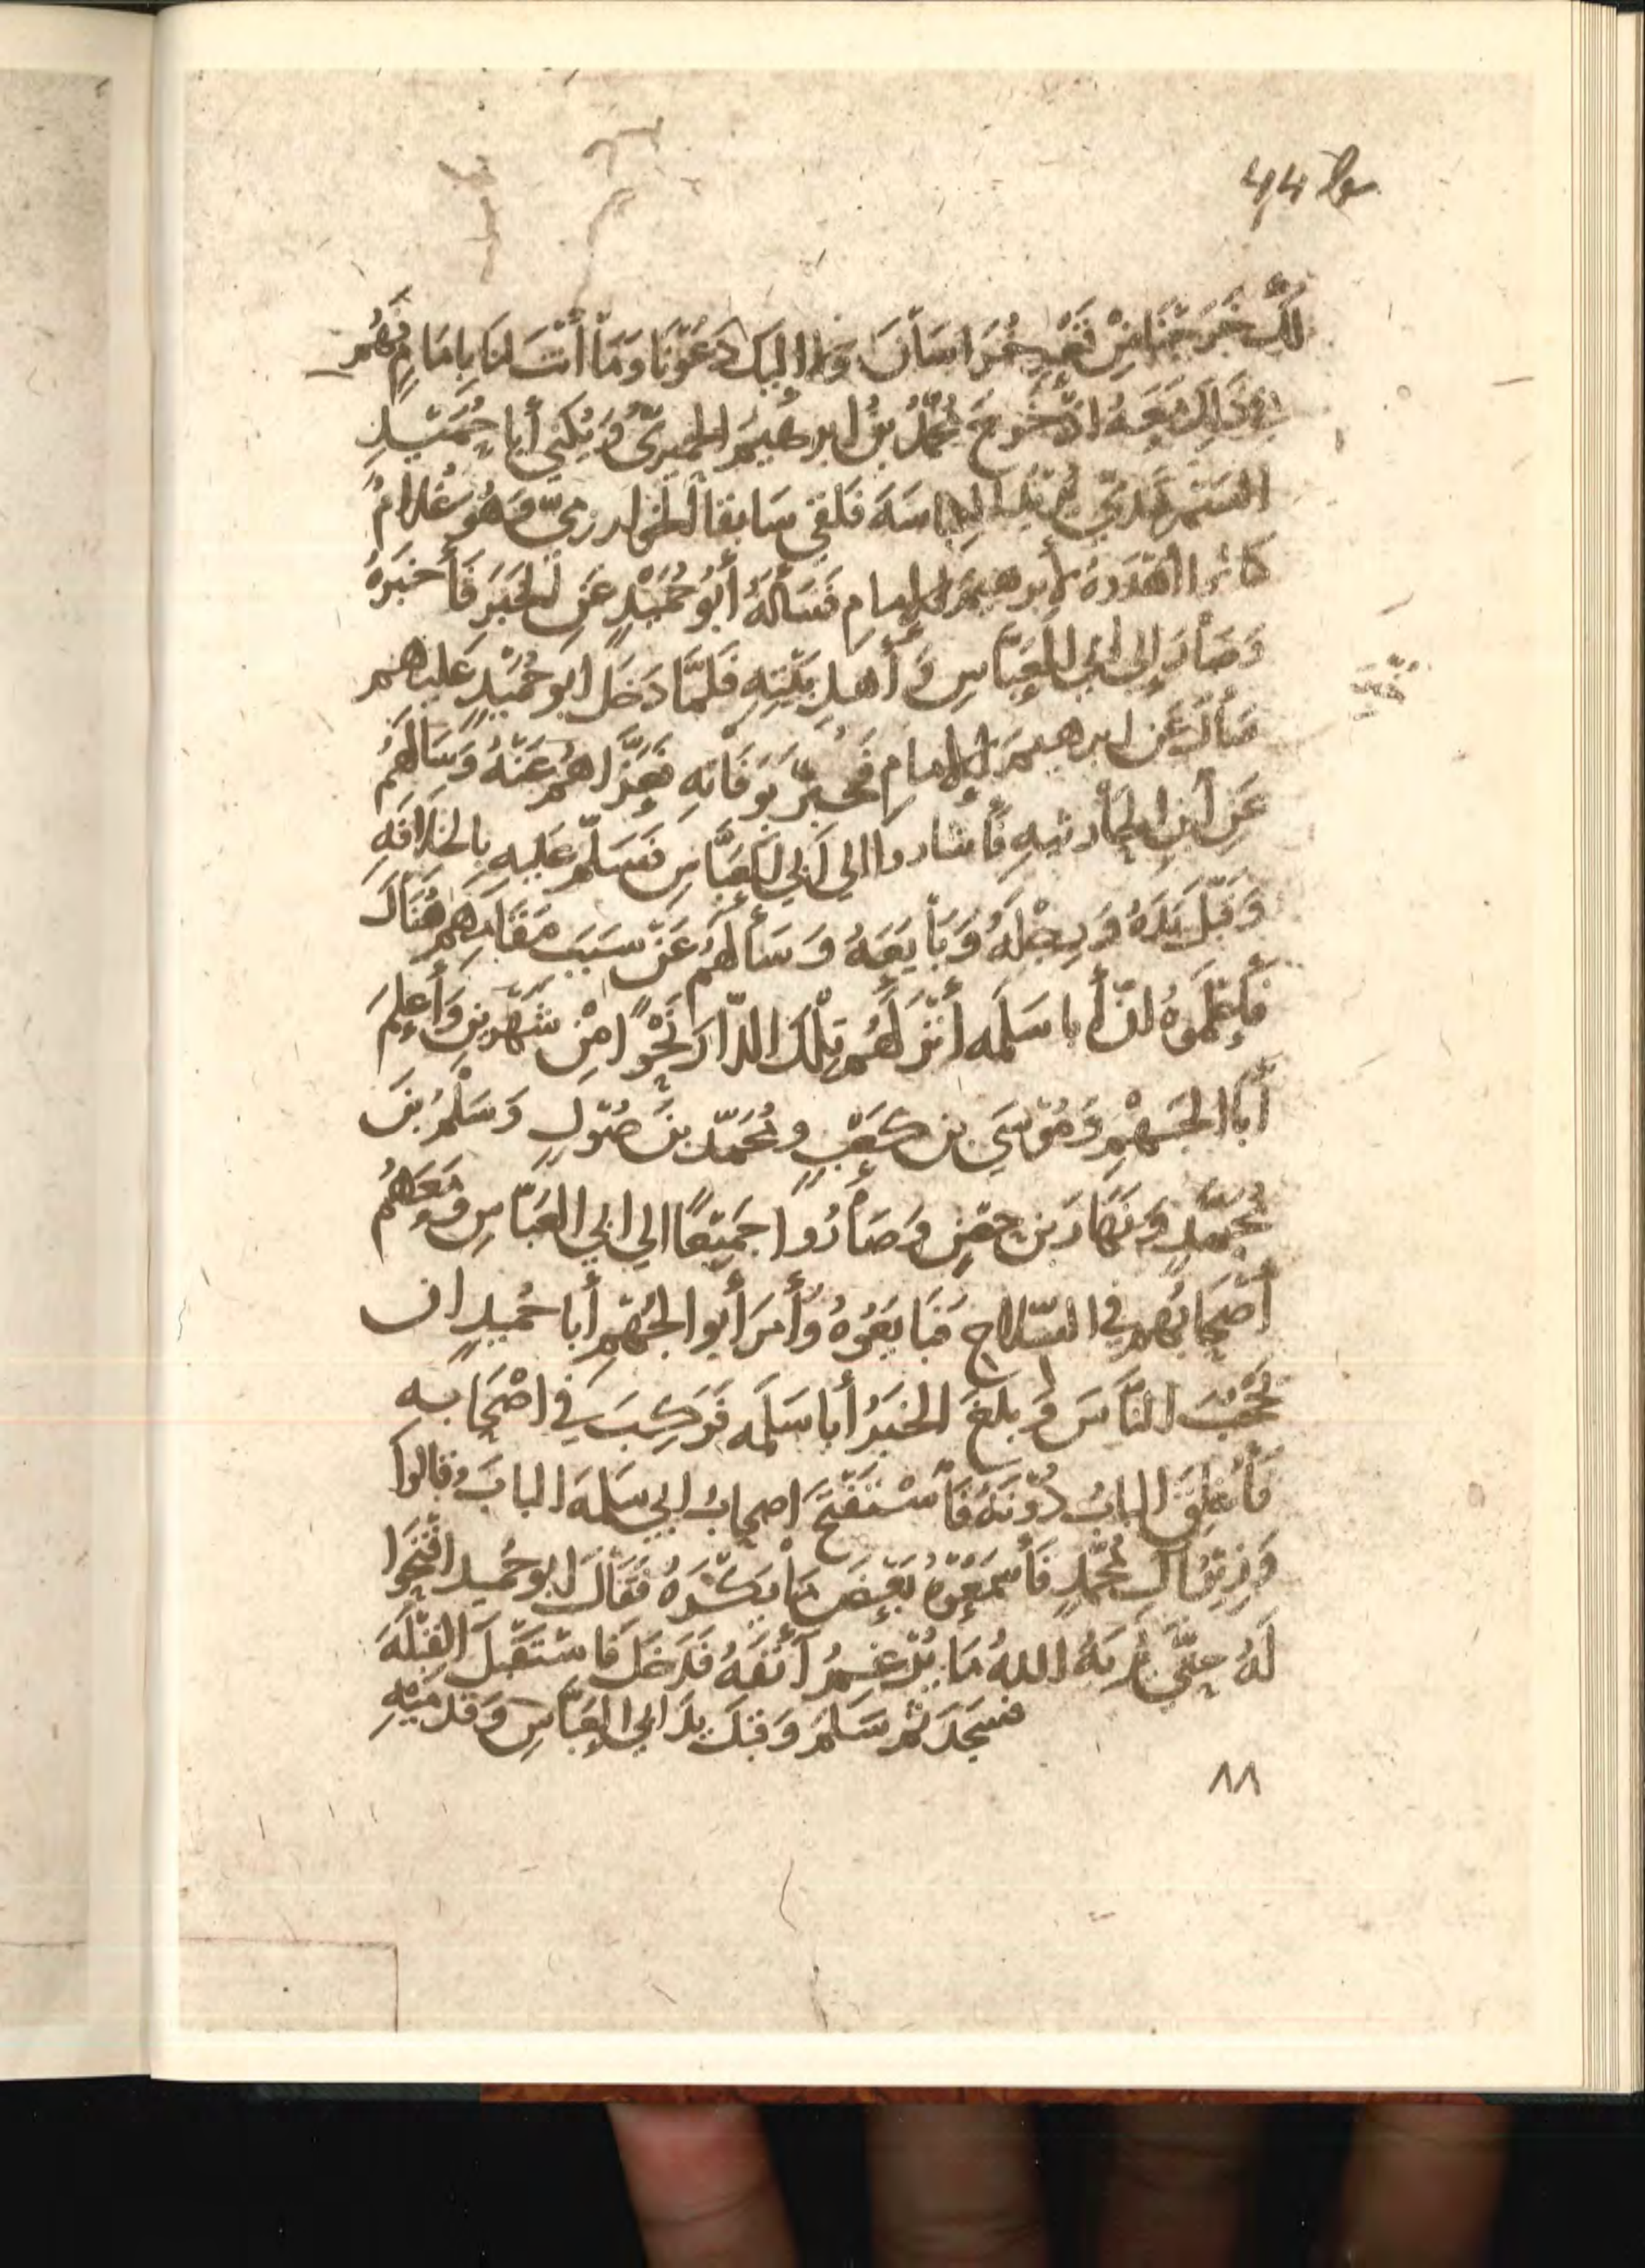 لك خرجنا من قعر خراسان ولا اليك دعونا وما أنت لنا بامام فهم
في ذلك معه اذ خرج محمد بن ابرهيم الحميري ويكنى أبا حميد
السمرقندي يريد الكناسة فلقي سابقا الخوارزمي وهو غلام
كانوا اهدوه لابرهيم الامام فسأله أبو حميد عن الخبر فأخبره
وصار إلى ابي العباس وأهل بيته فلما دخل ابو حميد عليهم
سأل عن ابرهيم الامام فخبر بوفاته فعزاهم عنه وسالهم
عن ابن الحارثيه فأشاروا الي ابي العباس فسلم عليه بالخلافه
وقبل يده ورجله وبايعه وسألهم عن سبب مقامهم هناك
فأعلموه ان أبا سلمه أنزلهم تلك الدار نحوا من شهرين وأعلم
أبا الجهم وموسي بن كعب ومحمد بن صول وسلم بن
محمد ونهار بن حصن وصاروا جميعا الي ابي العباس ومعهم
أصحابهم في السلاح فبايعوه وأمر أبو الجهم أبا حميد ان
يحجب الناس وبلغ الخبر أبا سلمه فركب في اصحابه
فأغلق الباب دونه فأستفتح اصحاب ابي سلمه الباب وقالوا
وزير آل محمد فأسمعوه بعض ما يكره فقال ابو حميد افتحوا
له حتي يريه الله ما يرغم أنفه فدخل فاستقبل القبله
فسجد ثم سلم وقبل يد ابي العباس وقدميه
٨٨